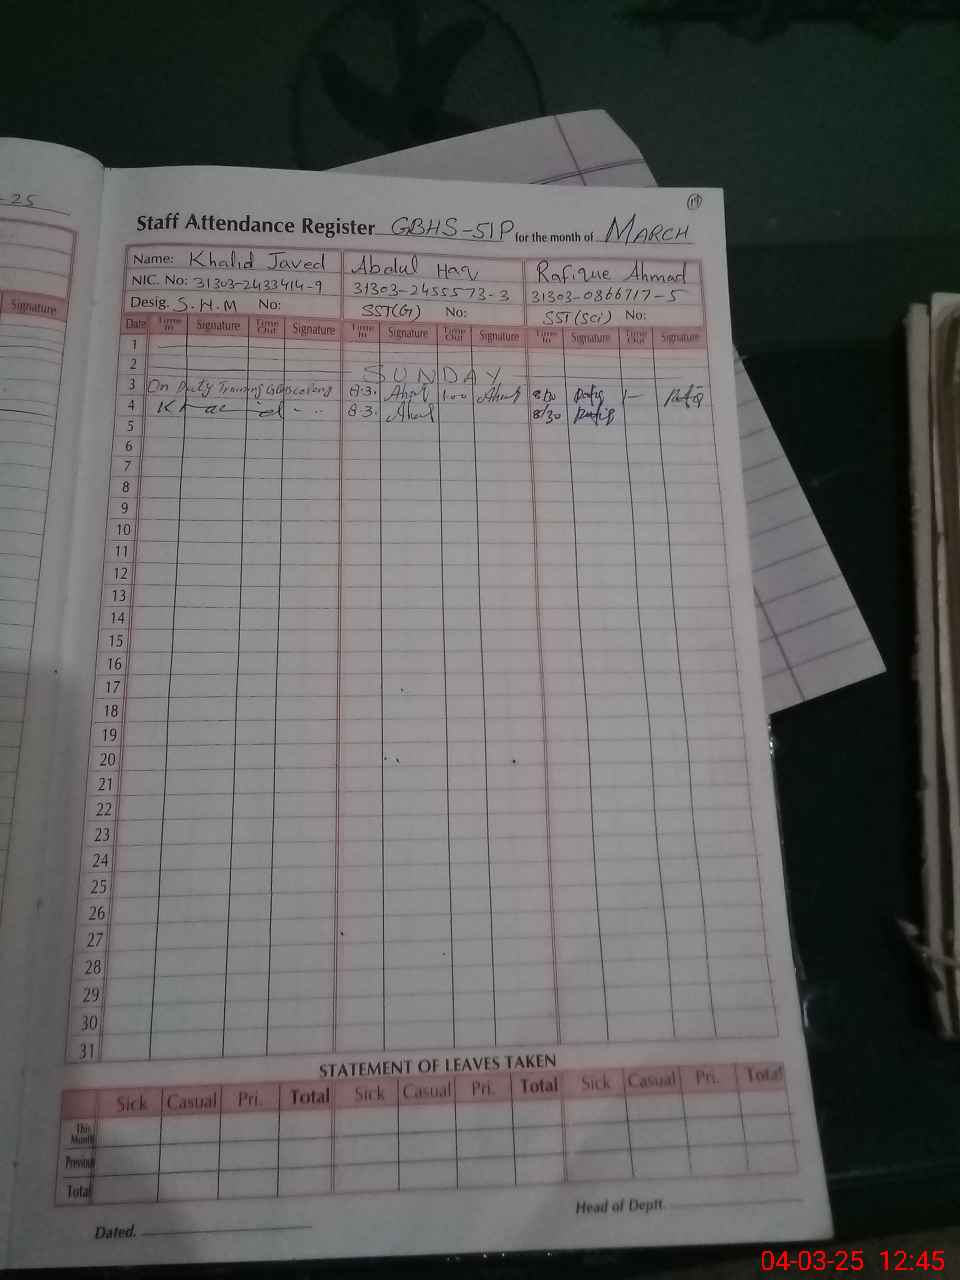 -25
Signature
19
Staff Attendance Register GBHS-51P for the month of MARCH
Name: Khalid Javed Abdul Haq Rafique Ahmad
NIC. No: 31303-2433414-9 31303-2455573-3 31303-0866717-5
Desig. S.H.M No: SST(G) No: SST(Sci) No:
Date Time In Signature Time Out Signature Time In Signature Time Out Signature Time In Signature Time Out Signature
1
2 SUNDAY
3 On Duty Training 8.3. 1.00
4 8.3. 8/30
5
6
7
8
9
10
11
12
13
14
15
16
17
18
19
20
21
22
23
24
25
26
27
28
29
30
31
STATEMENT OF LEAVES TAKEN
Sick Casual Pri. Total Sick Casual Pri. Total Sick Casual Pri. Total
This Month
Previous
Total
Dated. Head of Deptt.
04-03-25 12:45